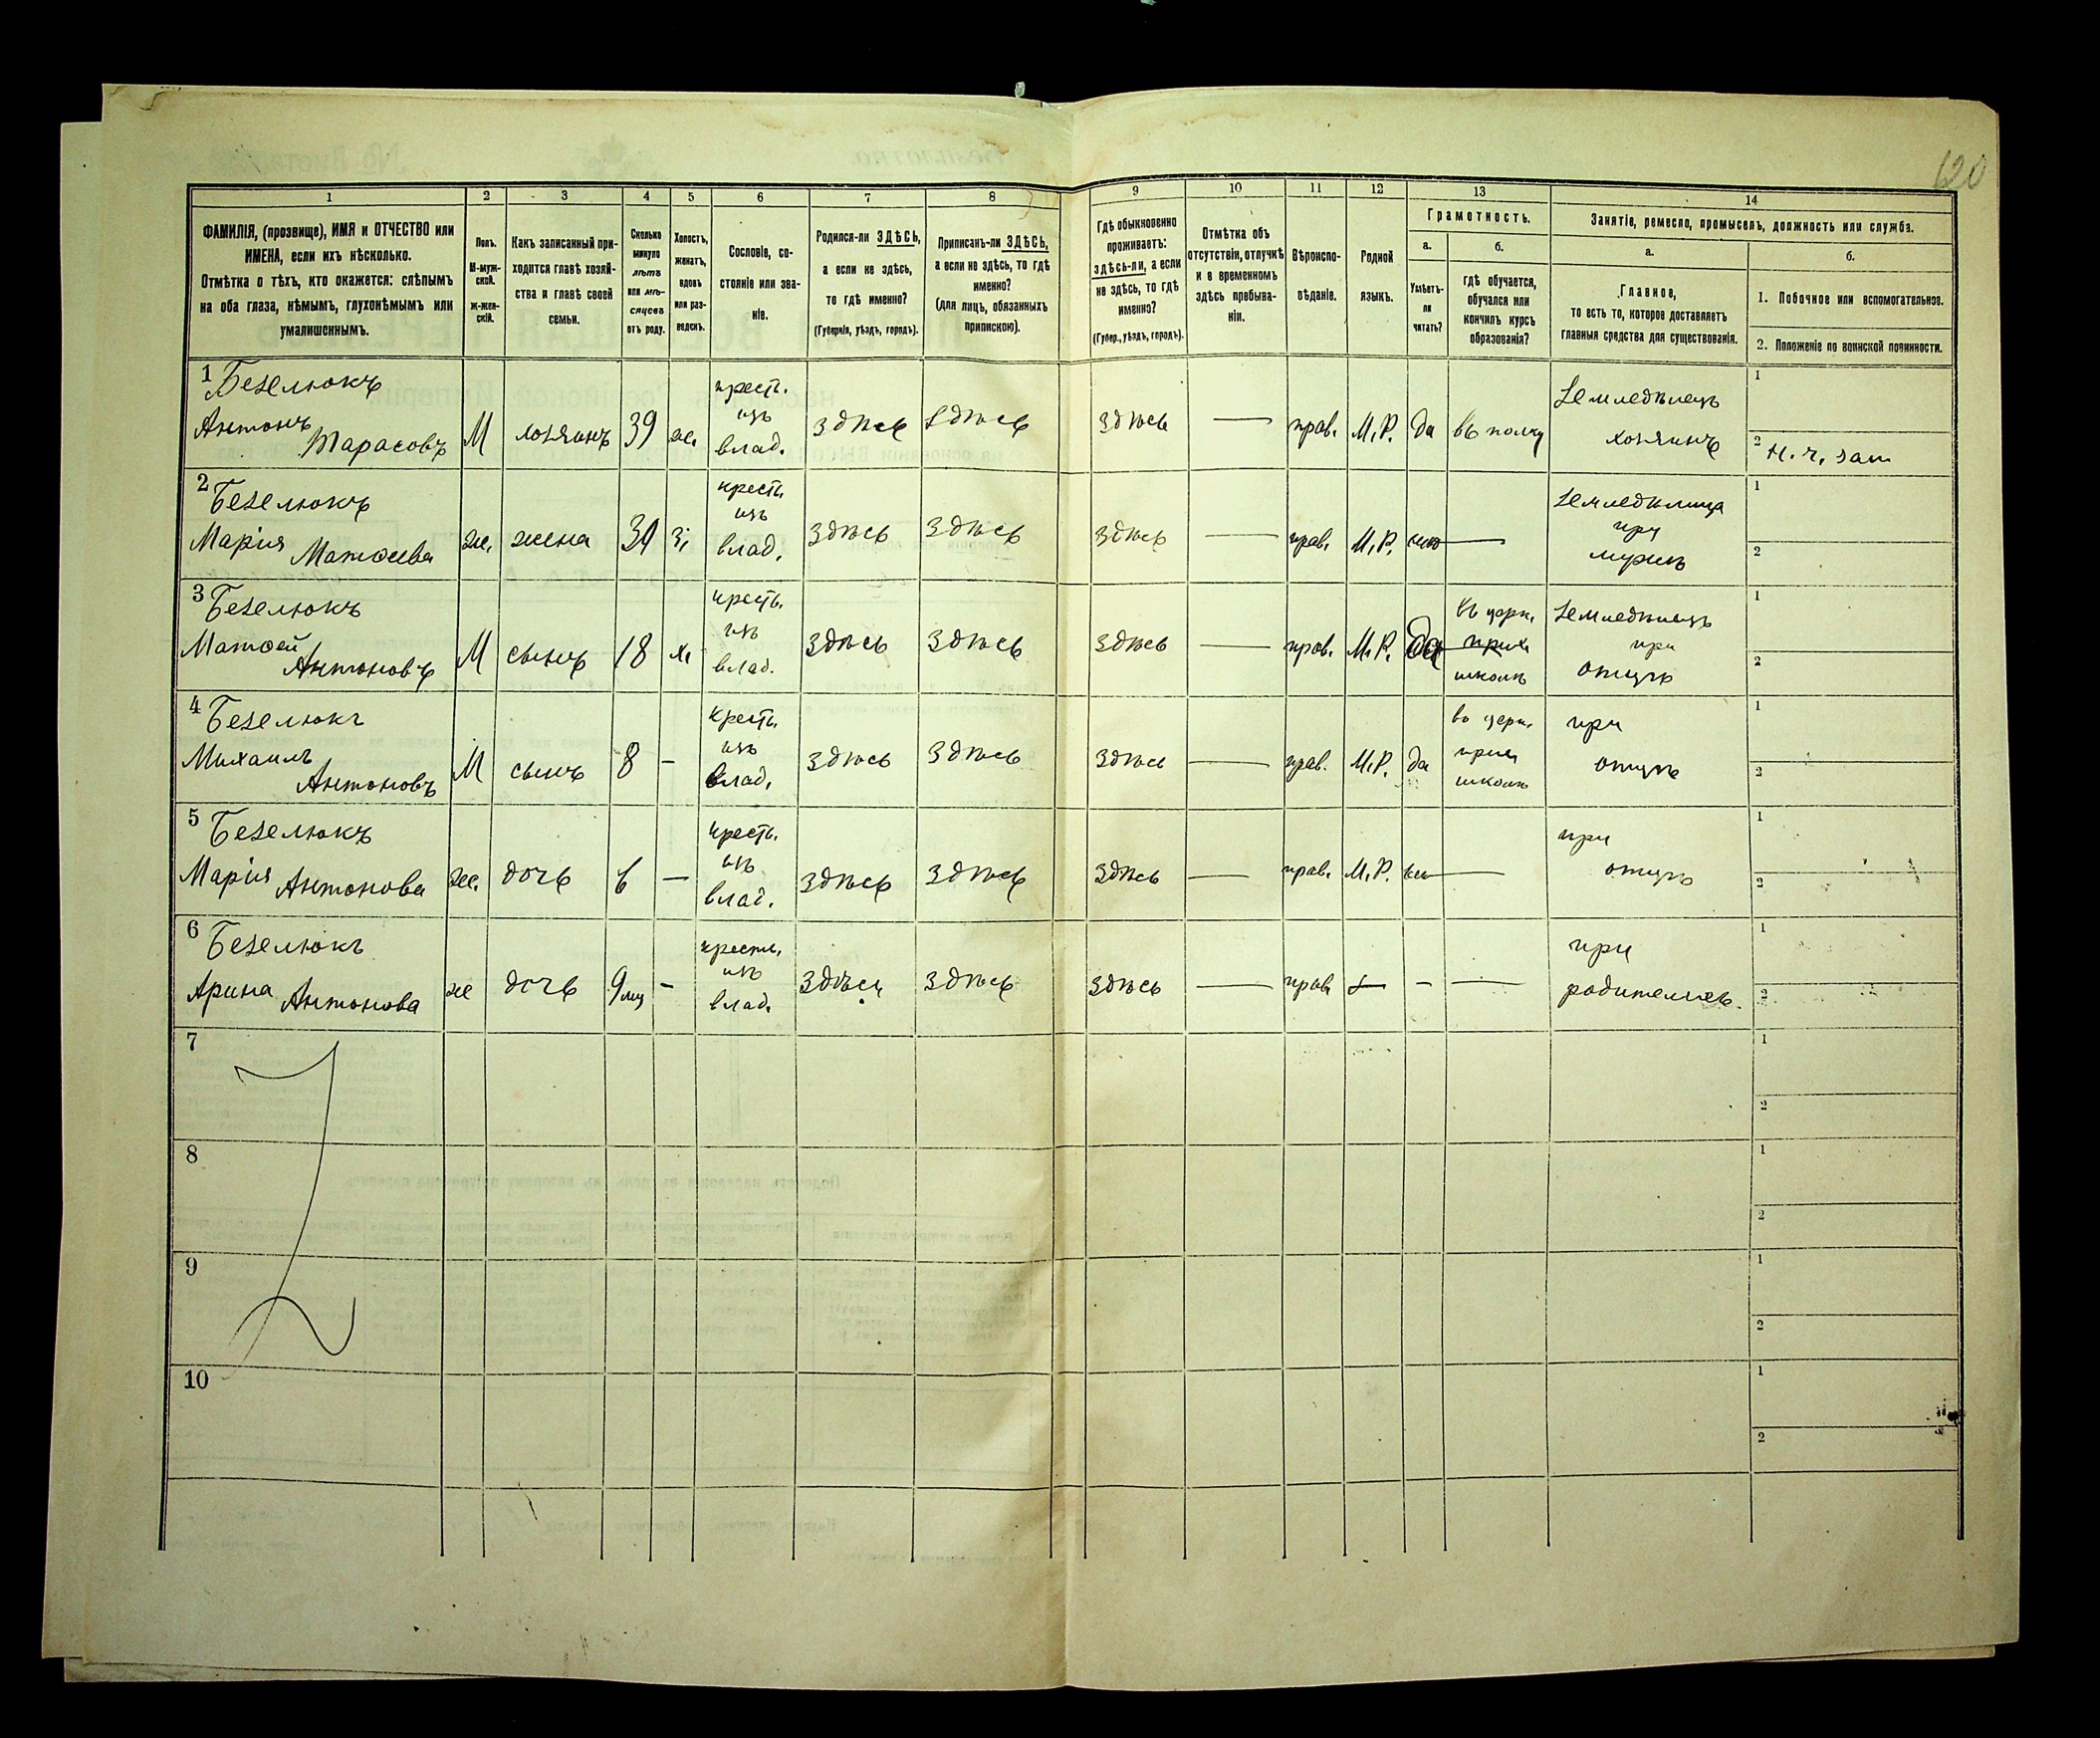 120
1 2 3 4 5 6 7 8 9 10 11 12 13 14
ФАМИЛІЯ, (прозвище), ИМЯ и ОТЧЕСТВО или
ИМЕНА, если ихъ нѣсколько.
Отмѣтка о тѣхъ, кто окажется: слѣпымъ
на оба глаза, нѣмымъ, глухонѣмымъ или
умалишеннымъ.
Полъ.
М-муж-
ской.
ж-жен-
скій.
Какъ записанный при-
ходится главѣ хозяй-
ства и главѣ своей
семьи.
Сколько
минуло
лѣтъ
или мѣ-
сяцевъ
отъ роду.
Холостъ,
женатъ,
вдовъ
или раз-
веденъ.
Сословіе, со-
стояніе или зва-
ніе.
Родился-ли ЗДѢСЬ,
а если не здѣсь,
то гдѣ именно?
(Губернія, уѣздъ, городъ).
Приписанъ-ли ЗДѢСЬ,
а если не здѣсь, то гдѣ
именно?
(для лицъ, обязанныхъ
припискою).
Гдѣ обыкновенно
проживаетъ:
здѣсь-ли, а если
не здѣсь, то гдѣ
именно?
(Губер., уѣздъ, городъ).
Отмѣтка объ
отсутствіи, отлучкѣ
и о временномъ
здѣсь пребыва-
ніи.
Вѣроиспо-
вѣданіе.
Родной
языкъ.
Грамотность.
а.
Умѣетъ-
ли
читать?
б.
гдѣ обучается,
обучался или
кончилъ курсъ
образованія?
Занятіе, ремесло, промыселъ, должность или служба.
а.
Главное,
то есть то, которое доставляетъ
главныя средства для существованія.
б.
1. Побочное или вспомогательное.
2. Положеніе по воинской повинности.
1 Безелюкъ
Антонъ
Тарасовъ
М хозяинъ 39 же.
крест.
изъ
влад.
здѣсь здѣсь здѣсь — прав. М.Р. да въ полку
Земледѣлецъ
хозяинъ
1
2 н. ч. зап
2 Безелюкъ
Марія Матѳеева
же. жена 39 з.
крест.
изъ
влад.
здѣсь здѣсь здѣсь — прав. М.Р. —
Земледѣлица
при
мужѣ
1
2
3 Безелюкъ
Матѳей
Антоновъ
М сынъ 18 х.
крест.
изъ
влад.
здѣсь здѣсь здѣсь — прав. М.Р. да
въ церк.
прих.
школѣ
Земледѣлецъ
при
отцѣ
1
2
4 Безелюкъ
Михаилъ
Антоновъ
М сынъ 8 —
крест.
изъ
влад.
здѣсь здѣсь здѣсь — прав. М.Р. да
въ церк.
прих.
школѣ
при
отцѣ
1
2
5 Безелюкъ
Марія Антонова
же. дочь 6 —
крест.
изъ
влад.
здѣсь здѣсь здѣсь — прав. М.Р. —
при
отцѣ
1
2
6 Безелюкъ
Арина Антонова
же дочь 9 мц —
крест.
изъ
влад.
здѣсь здѣсь здѣсь — прав. — — —
при
родителяхъ.
1
2
7
1
2
8
1
2
9
1
2
10
1
2